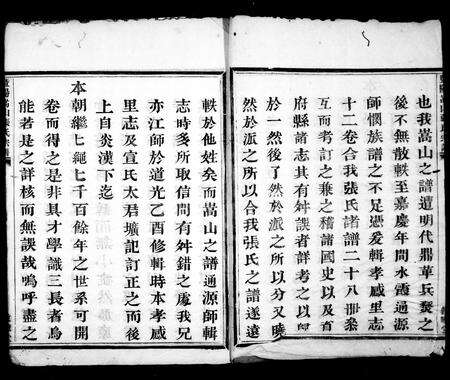 也我嵩山之譜遭明代鼎革兵燹之
後不無散軼至嘉慶年間水霞通源
師憫族譜之不足憑爰輯孝感里志
十二卷合我張氏諸譜二十八冊叅
互而考訂之兼之稽諸國史以及直
府縣諸志其有舛誤者詳考之以歸
於一然後了然於派之所以分又曉
然於派之所以合我張氏之譜遂遠
軼於他姓矣而嵩山之譜通源師輯
志時多所取信間有舛錯之處我兄
亦江師於道光乙酉修輯時本孝感
里志及宣氏太君壙記訂正之而後
上自炎漢下迄
本朝繼繼繩繩千百餘年之世系可開
卷而得之是非具才學識三長者烏
能若是之詳核而無誤哉嗚呼盡之